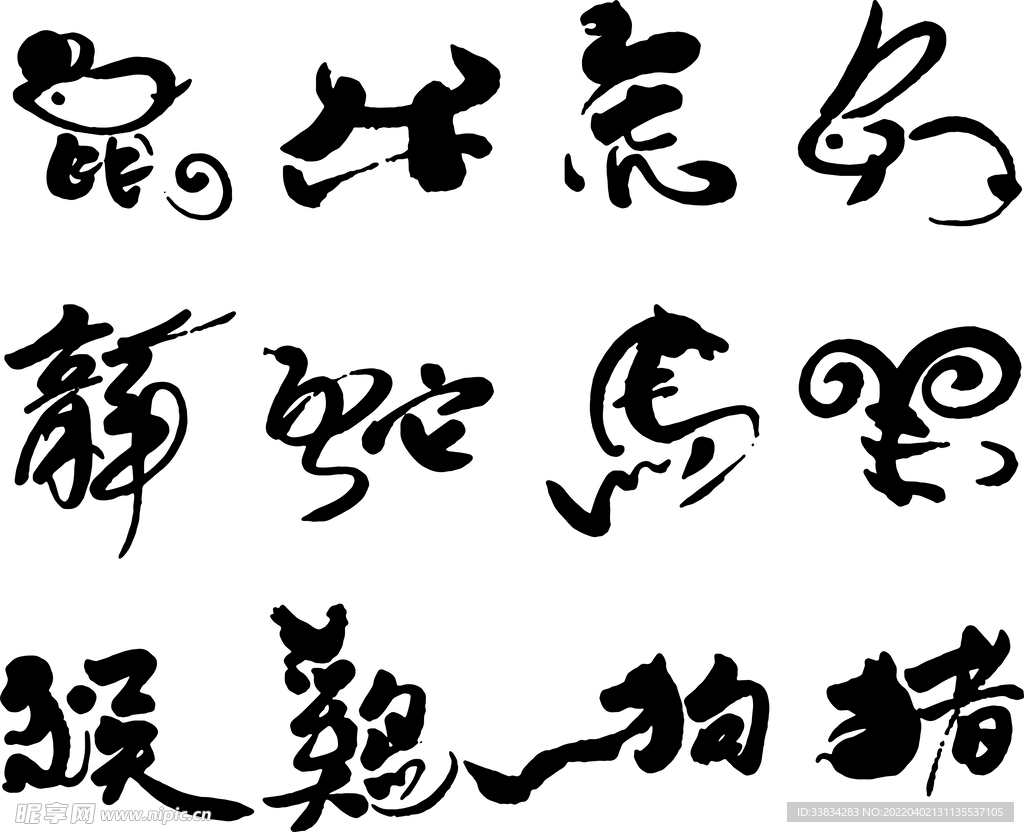 鼠 牛 虎 兔
龍 蛇 馬 羊
猴 鷄 狗 猪
昵享网 www.nipic.cn
ID:33834283 NO:20220402131135537105